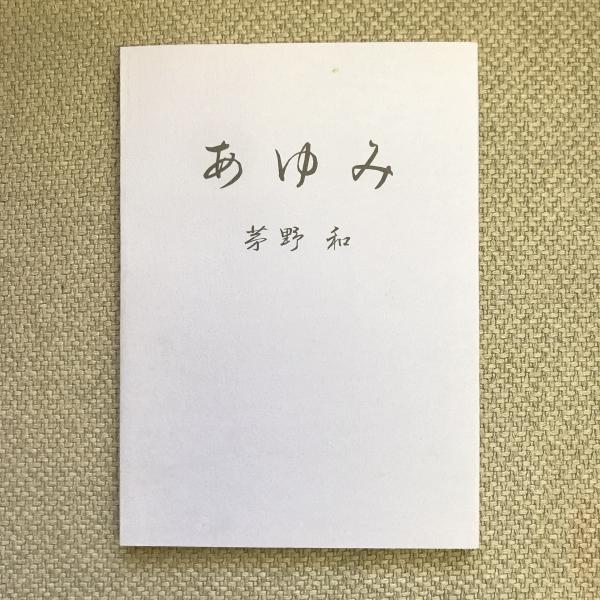 あゆみ
茅野 和